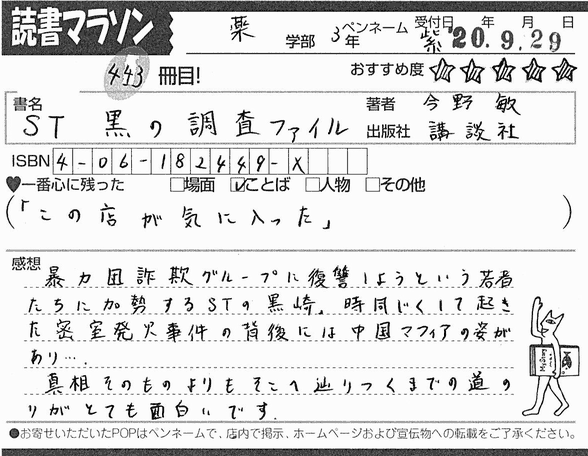 読書マラソン
薬 学部 3年 ペンネーム 紫 受付日 年 月 日
'20. 9. 29
443 冊目!
おすすめ度 ☆☆☆☆☆
書名 ST 黒の調査ファイル
著者 今野 敏
出版社 講談社
ISBN 4-06-182449-X
♥一番心に残った □場面 ☑ことば □人物 □その他
(「この店が気に入った」)
感想
暴力団詐欺グループに復讐しようという若者
たちに加勢するSTの黒崎。時同じくして起き
た密室発火事件の背後には中国マフィアの姿が
あり….
真相そのものよりもそこへ辿りつくまでの道の
りがとても面白いです.
●お寄せいただいたPOPはペンネームで、店内で掲示、ホームページおよび宣伝物への転載をご了承ください。